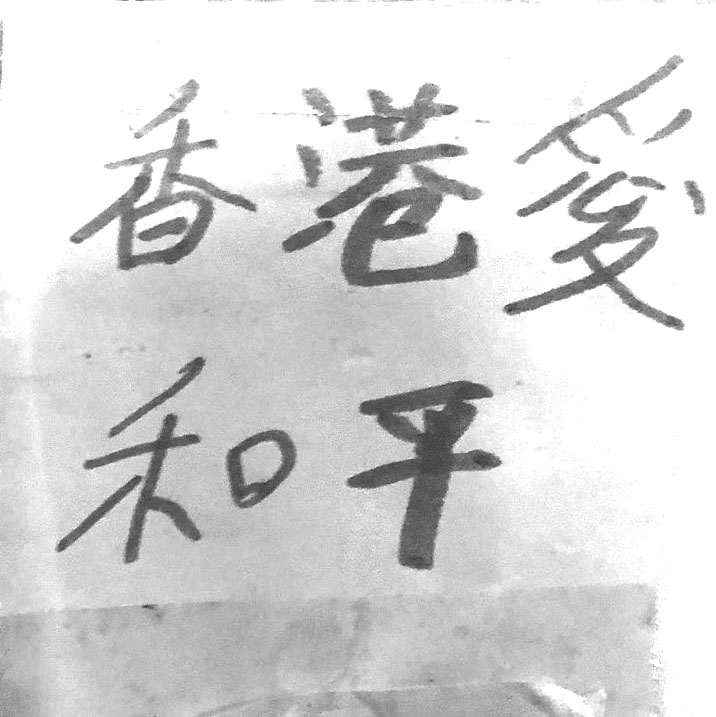 香港愛
和平